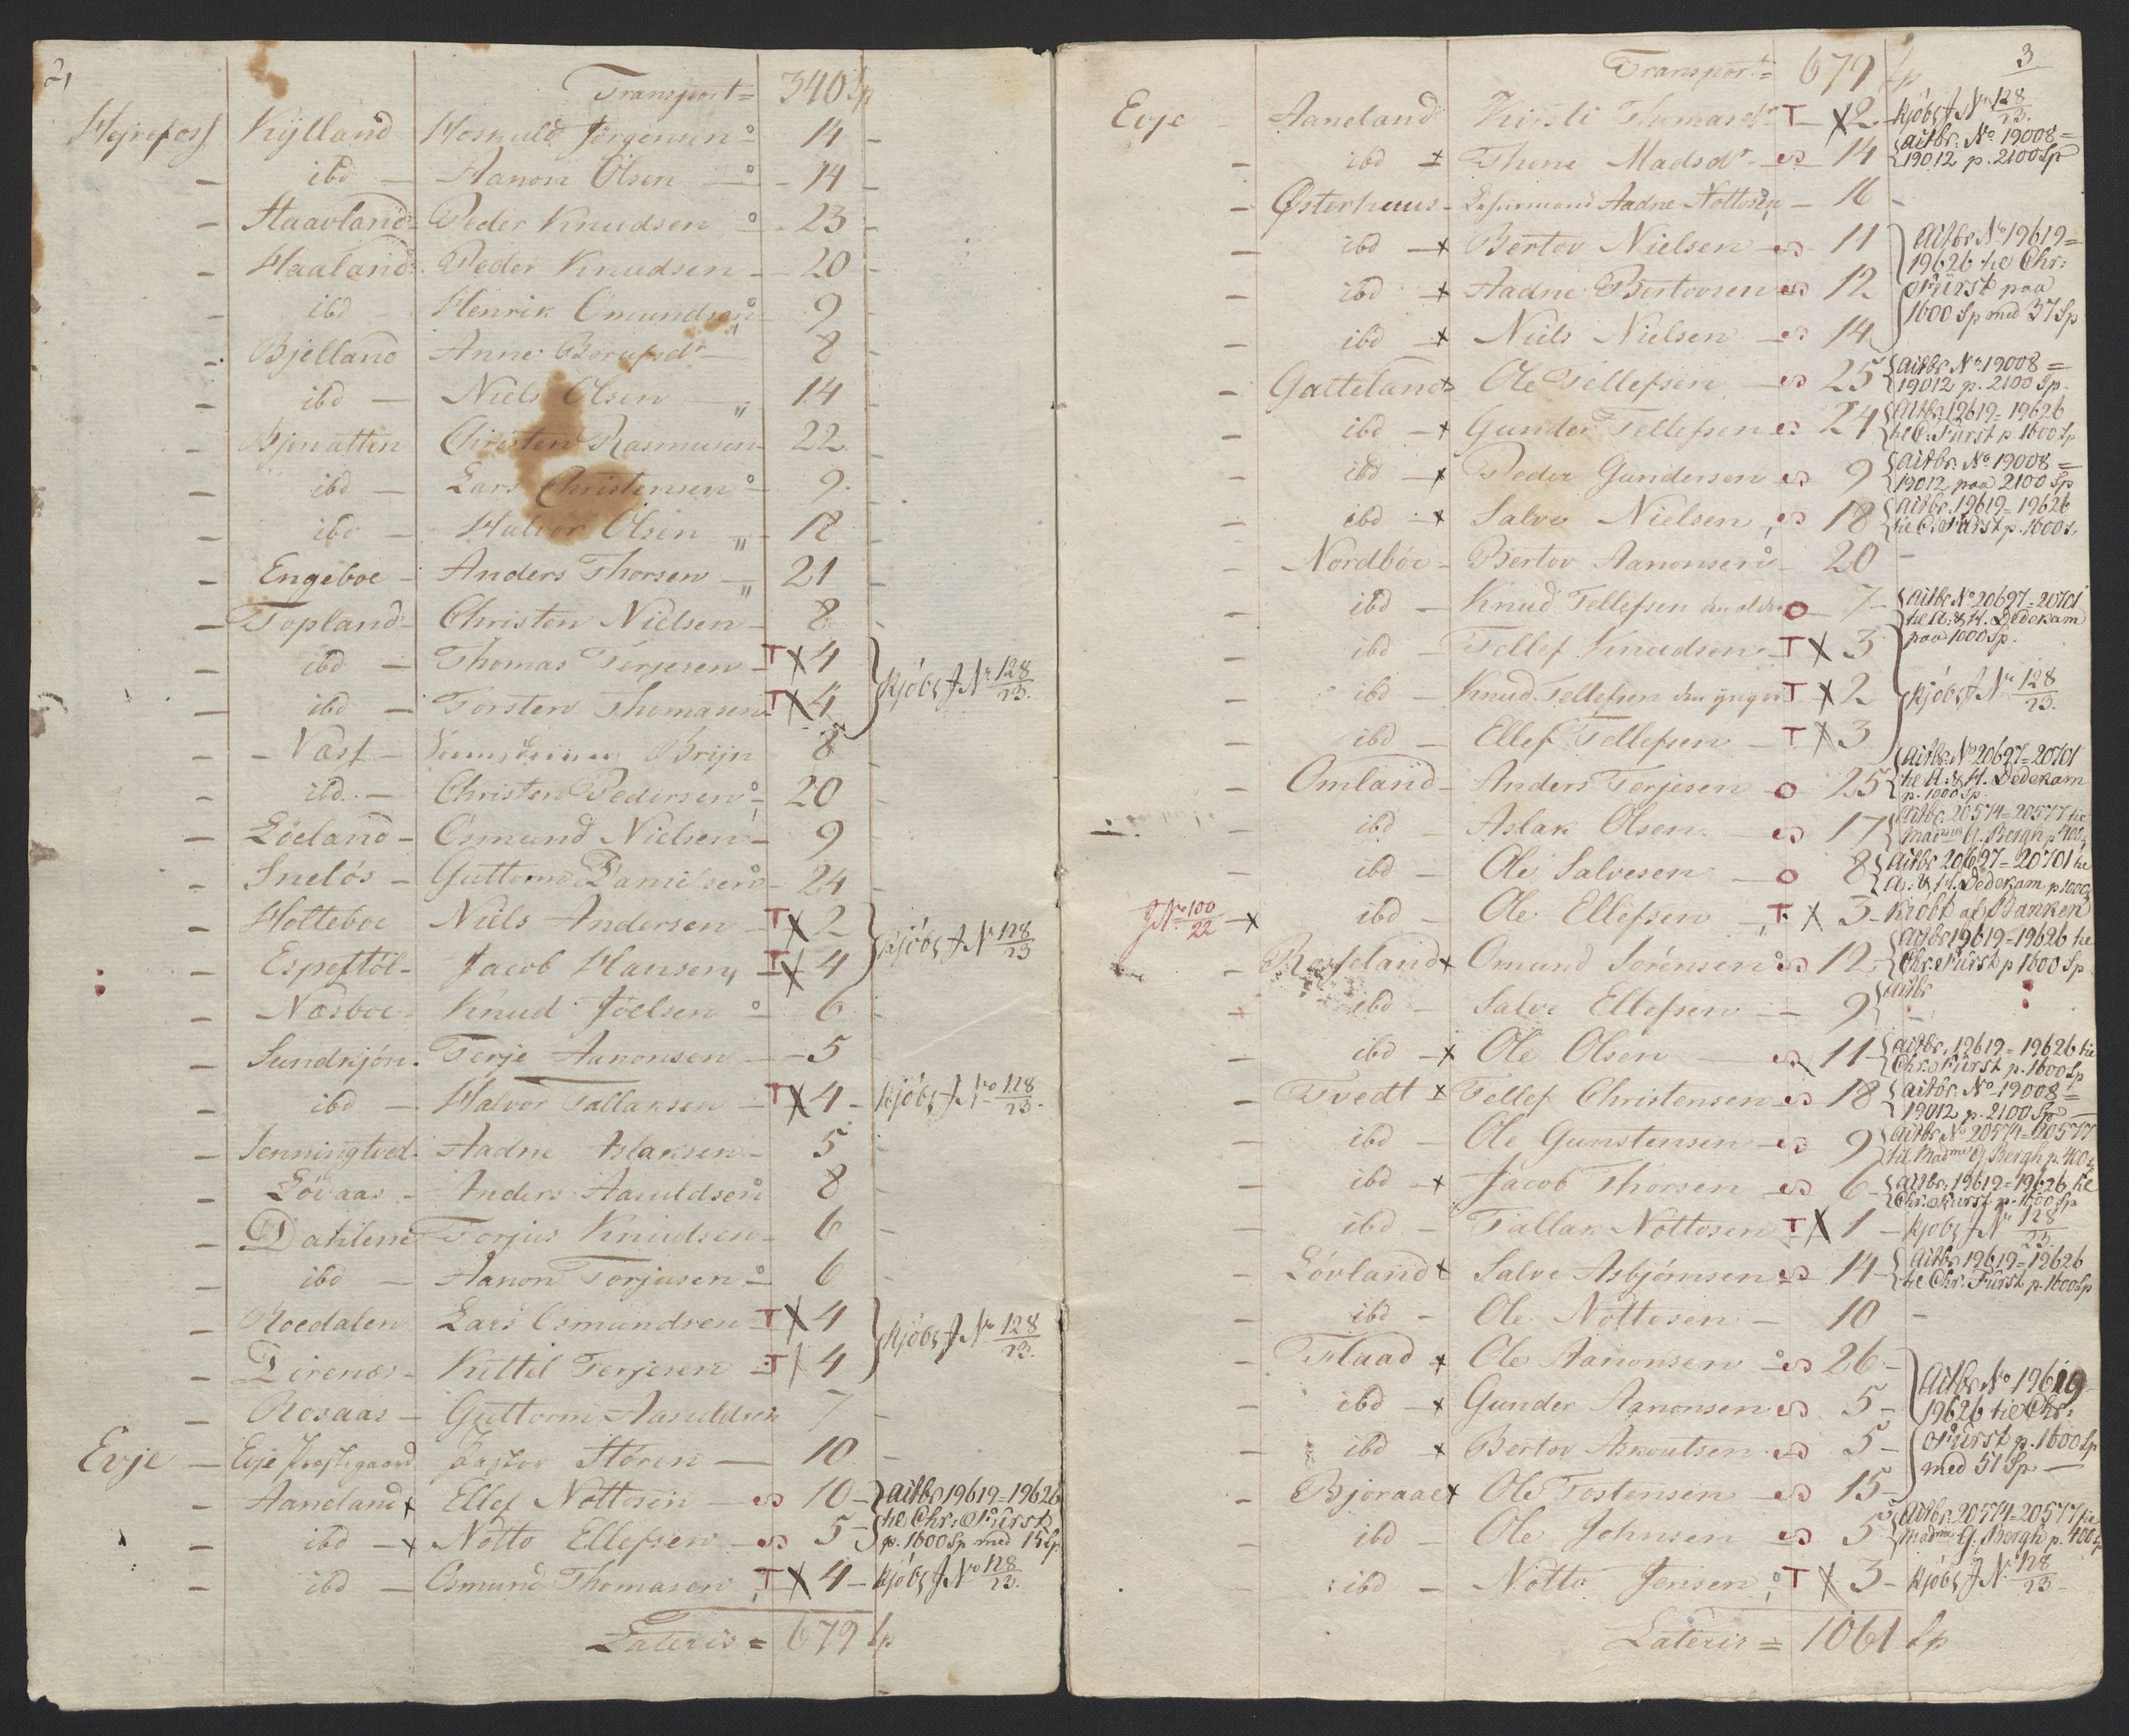 2,
Transport = 340 Sp
Hejrefoss Kÿlland Hoskuld Jörgensen 14 -
- ibd - Aanon Olsen - 14 -
- Haavland Peder Knudsen - 23 -
- Haaland Peder Knudsen - 20 -
- ibd Henrik Omundsen 9
- Bjelland Anne 8 -
- ibd - Niels Olsen - 14 -
- Christen Rasmusen 22 -
- ibd - Lars Christensen 9 -
- ibd - Halvor Olsen 12 -
- Engeboe - Anders Thorsen - 21 -
- Topland - Christen Nielsen - 8 -
- ibd - Thomas Terjesen T X 4
- ibd - Torsten Thomasen T X 4 } Kjöbs J No 128/23.
- Væst - Brijn 8 -
- ibd - Christen Pedersen 20 -
- Löeland - Osmund Nielsen - 9
- Snelös - Guttorm Danielsen 24 -
- Holteboe Niels Andersen T X 2
- Espestöl - Jacob Hansen T X 4 } Kjöbs J No 128/23
- Næsboe - Knud Joelsen 6 -
- Sundkjön. Terje Aanonsen - 5 -
- ibd - Halvor Tallaksen T X 4 - Kjöbs J No 128/23.
- Senningtved Aadne Aslaksen - 5 -
- Lövaas - Anders Aasuldsen 8 -
- Dahlene Torjus Knudsen - 6 -
- ibd - Aanon Torjusen 6 -
- Roedalen Lars Osmundsen T X 4
- Direnæs - Kittel Terjesen T X 4 } Kjöbs J No 128/23.
- Rosaas - Guttorm Aasuldsen 7 -
Evje - Evje Præstegaard Pastor Stören - 10 -
- Aaneland x Ellef Nottosen - 10 - } aitbr 19619 = 19626
- ibd - x Notto Ellefsen - 5 - } til Chr: Fürst p. 1600 Sp med 15 Sp
- ibd - Osmund Thomasen T X 4 - Kjöbs J No 128/23.
Lateris = 679 Sp
3
Transport = 679 Sp
Evje - Aaneland Kirsti Thomasdr T X 2 - Kjöbs J No 128/23.
- ibd x Thone Madsdr - 14 { aitbr. No 19008 = 19012 p. 2100 Sp
- Østerhuus - Aadne Nottosen - 16 -
- ibd - x Bertov Nielsen - 11
- ibd x Aadne Bertovsen 12
- ibd x Niels Nielsen - 14
} aitbr No 19619 =
19626 til Chr:
Fürst paa
1600 Sp med 37 Sp
- Gatteland x Ole Tellefsen - 25 { aitbr No 19008 = 19012 p. 2100 Sp.
- ibd - x Gunder Tellefsen 24 { aitbr. 19619 = 19626 til C. Fürst p 1600 Sp
- ibd - x Peder Gundersen 9 { aitbr. No 19008 = 19012 paa 2100 Sp
- ibd - x Salve Nielsen 18 { aitbr. 19619 = 19626 til C. Fürst p. 1600 S.
- Nordböe - Bertov Aanonsen 20 -
- ibd - Knud Tellefsen den eldre O 7 - { aitbr No 20697 = 20701 til A: & H. Dedekam paa 1000 Sp.
- ibd - Tellef Knudsen T X 3
- ibd - Knud Tellefsen den ÿngre T X 2 } Kjöbs J No 128/23.
- ibd - Ellef Tellefsen - T X 3
- Omland - Anders Terjesen O 25 { aitbr. No 20697 = 20701 til A. & H. Dedekam p. 1000 Sp.
- ibd - Aslak Olsen - 17 { aitbr. 20574 = 20577 til G. Bergh p 400
- ibd - Ole Salvesen - O 8 { aitbr 20697 = 20701 til A. & H. Dedekam p 1000
J No 100/22 - x ibd - Ole Ellefsen T X 3 - Kiöbt af Banken
- Rosseland x Omund Sörensen 12 - { aitbr 19619 = 19626 til Chr. Fürst p 1600 Sp
- ibd - Salve Ellefsen - 9 { aitbr
- ibd - x Ole Olsen - 11 - { aitbr. 19619 = 19626 til Chr: Fürst p. 1600 Sp
- Tvedt x Tellef Christensen 18 { aitbr. No 19008 = 19012 p. 2100 Sp
- ibd - Ole Gunstensen - 9 { aitbr No 20574 = 20577 til G. Bergh p. 400
- ibd - x Jacob Thorsen - 6 - { aitbr. 19619 = 19626 til Chr. Fürst p. 1600 Sp
- ibd - Tallak Nottosen T X 1 - Kjöbs J No 128/23.
- Lövland x Salve Asbjörnsen 14 - { aitbr 19619 = 19626 til Chr. Fürst p. 1600 Sp
- ibd - Ole Nottosen - 10 -
- Flaad x Ole Aanonsen 26 -
- ibd - x Gunder Aanonsen 5 -
- ibd x Bertov 5 -
- Bjoraae x Ole Tostensen - 15 -
} aitbr No 19619
19626 til Chr:
Fürst p. 1600 Sp
med 51 Sp -
- ibd - Ole Johnsen - 5 { aitbr. 20574 = 20577 til G. Bergh p. 400
- ibd - Notto Jensen T X 3 - Kjöbs J No 128/23
Lateris = 1061 Sp